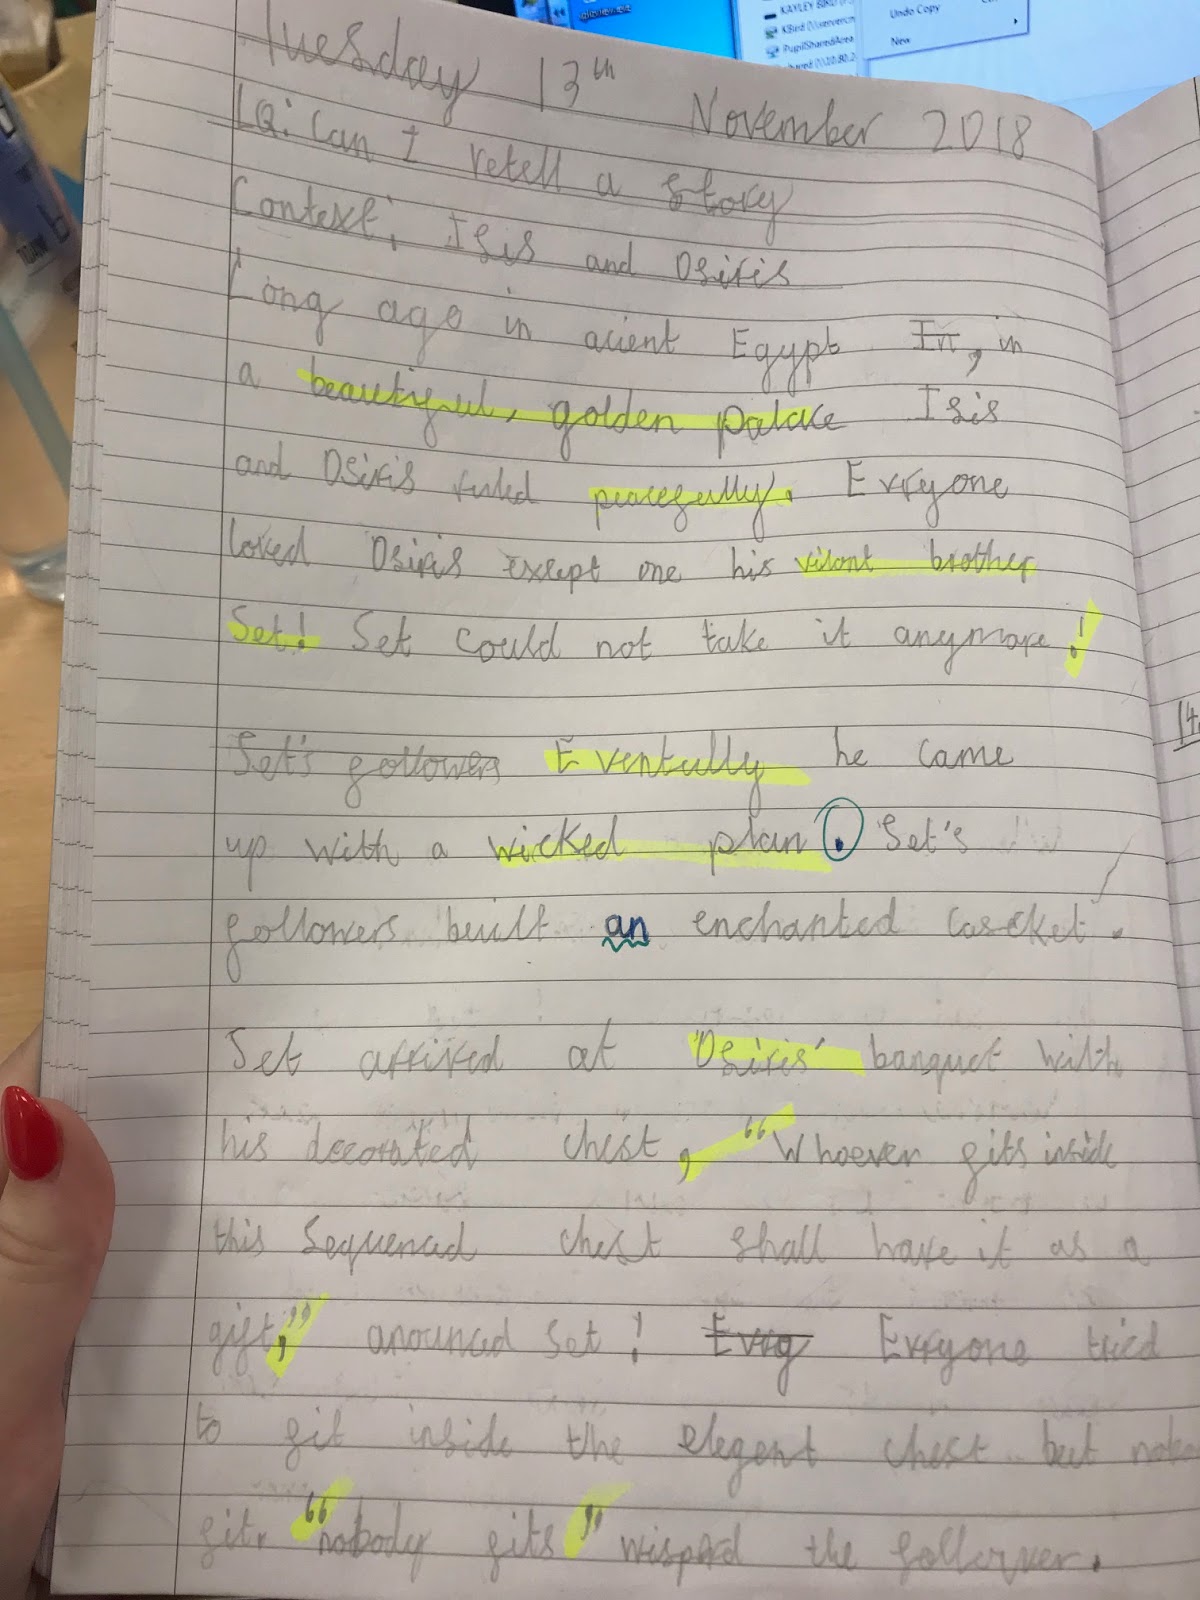 KAYLEY BIRD
KBird
PupilSharedArea
Undo Copy
New
Tuesday 13th November 2018
LQ: Can I retell a story
Context; Isis and Osiris
Long ago in acient Egypt In, in
a beautiful, golden palace Isis
and Osiris ruled peacefully. Evryone
loved Osiris except one his vilont brother
Set! Set could not take it anymore!
Set's followers Eventully he came
up with a wicked plan. Set's
followers built an enchanted Cascket.
Set arrived at 'Osiris' banquet with
his decorated chest, "Whoever fits inside
this Sequenced chest shall have it as a
gift," anounced Set! Evrg Evryone tried
to fit inside the elegent chest but
fit. "nobody fits" wisprd the follower.
14.